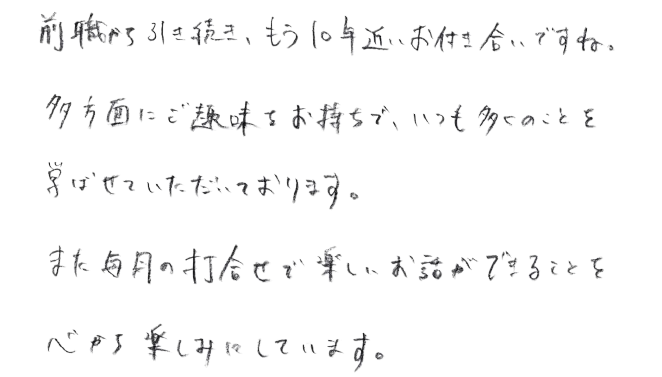 前職から引き続き、もう10年近いお付き合いですね。
多方面にご趣味をお持ちで、いつも多くのことを
学ばせていただいております。
また毎月の打合せで楽しいお話ができることを
心から楽しみにしています。